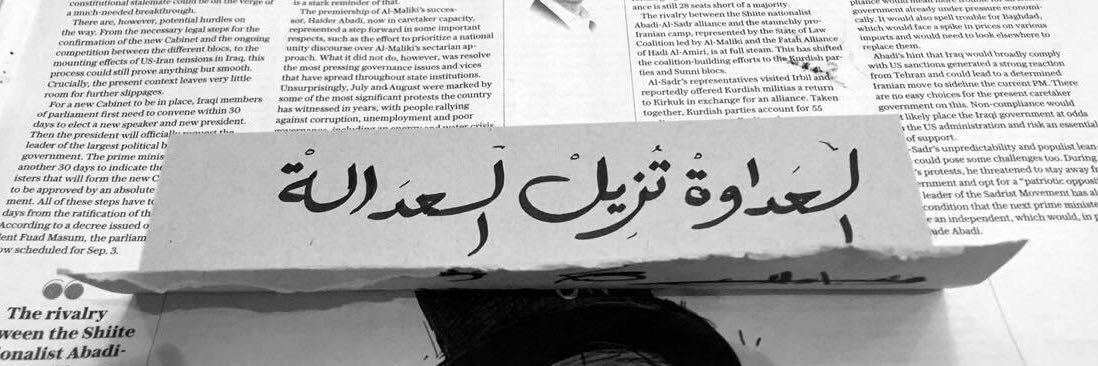 constitutional stalemate could be on the verge of
a much-needed breakthrough.
There are, however, potential hurdles on
the way. From the necessary legal steps for the
confirmation of the new Cabinet and the ongoing
competition between the different blocs, to the
mounting effects of US-Iran tensions in Iraq, this
process could still prove anything but smooth.
Crucially, the present context leaves very little
room for further slippages.
For a new Cabinet to be in place, Iraqi members
of parliament first need to convene within 30
days to elect a new speaker and new president.
Then the president will officially request the
leader of the largest political b
government. The prime minis
another 30 days to indicate the
isters that will form the new C
to be approved by an absolute
ment. All of these steps have to
days from the ratification of th
According to a decree issued o
ent Fuad Masum, the parliam
ow scheduled for Sep. 3.
The rivalry
ween the Shiite
onalist Abadi-
is a stark reminder of that.
The premiership of Al-Maliki's succes-
sor, Haider Abadi, now in caretaker capacity,
represented a step forward in some important
respects, such as the effort to prioritize a national
unity discourse over Al-Maliki's sectarian ap-
proach. What it did not do, however, was resolve
the most pressing governance issues and vices
that have spread throughout state institutions.
Unsurprisingly, July and August were marked by
some of the most significant protests the country
has witnessed in years, with people rallying
against corruption, unemployment and poor
governance, including an energy and water crisis
ance is still 28 seats short of a majority.
The rivalry between the Shiite nationalist
Abadi-Al-Sadr alliance and the staunchly pro-
Iranian camp, represented by the State of Law
Coalition led by Al-Maliki and the Fatah Alliance
of Hadi Al-Amiri, is at full steam. This has shifted
the coalition-building efforts to the Kurdish par-
ties and Sunni blocs.
Al-Sadr's representatives visited Irbil and
reportedly offered Kurdish militias a return
to Kirkuk in exchange for an alliance. Taken
together, Kurdish parties account for 55
government already under pressure economi-
cally. It would also spell trouble for Baghdad,
which would face a spike in prices on various
imports and would need to look elsewhere to
replace them.
Abadi's hint that Iraq would broadly comply
with US sanctions generated a strong reaction
from Tehran and could lead to a determined
Iranian move to sideline the current PM. There
are no easy choices for the present caretaker
government on this. Non-compliance would
likely place the Iraqi government at odds
the US administration and risk an essential
of support.
-Sadr's unpredictability and populist lean-
could pose some challenges too. During
's protests, he threatened to stay away fr
ernment and opt for a "patriotic opposi
leader of the Sadrist Movement has al
condition that the next prime ministe
e an independent, which would, in p
ude Abadi.
العَداوةْ تُزيلْ العَدالةْ